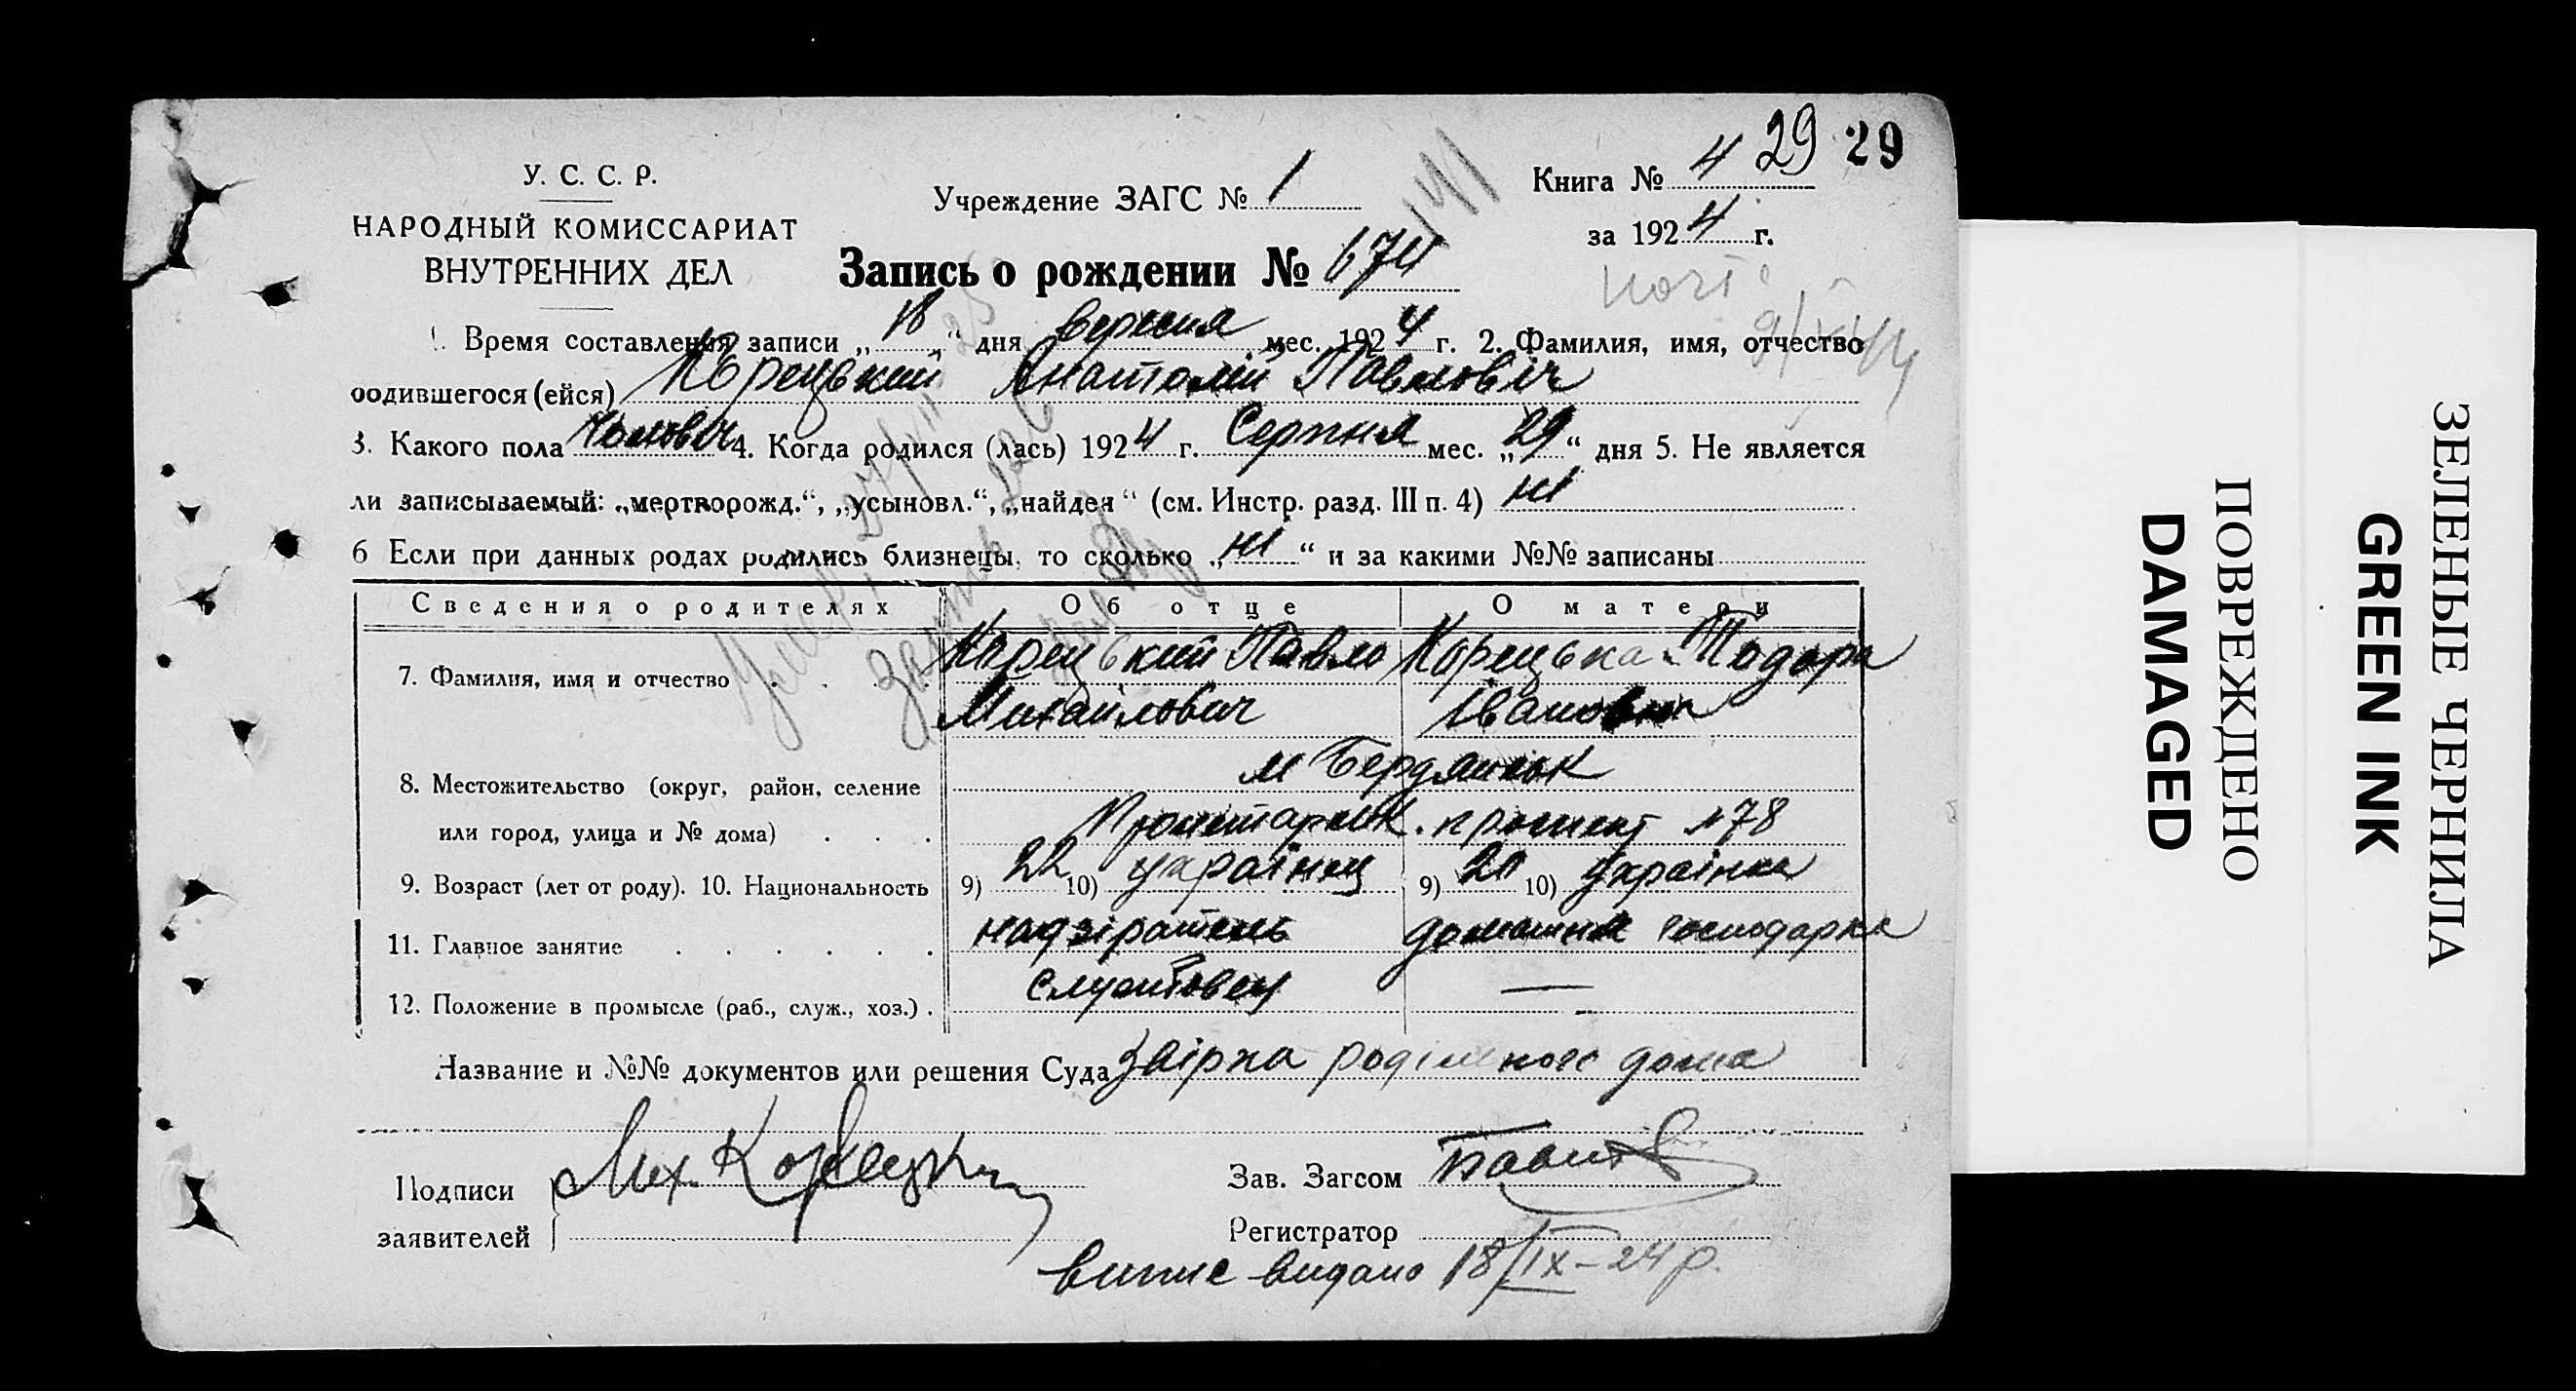 У. С. С. Р.
НАРОДНЫЙ КОМИССАРИАТ
ВНУТРЕННИХ ДЕЛ
Учреждение ЗАГС № 1
Книга № 4 29 29
за 1924 г.
Запись о рождении № 674
141
1. Время составления записи „18“ дня вересня мес. 1924 г. 2. Фамилия, имя, отчество
родившегося (ейся) Корецький Анатолій Павлович
3. Какого пола чолович 4. Когда родился (лась) 1924 г. Серпня мес. „29“ дня 5. Не является
ли записываемый: „мертворожд.“, „усыновл.“, „найден“ (см. Инстр. разд. III п. 4) ні
6 Если при данных родах родились близнецы, то сколько „ні“ и за какими №№ записаны
Сведения о родителях Об отце О матери
7. Фамилия, имя и отчество Корецький Павло Корецька Тодора
Михайлович Івановна
8. Местожительство (округ, район, селение м Бердянськ
или город, улица и № дома) Пролетарськ. проспект №78
9. Возраст (лет от роду). 10. Национальность 9) 22 10) українец 9) 20 10) українка
11. Главное занятие надзіратель домашня господарка
12. Положение в промысле (раб., служ., хоз.) службовец —
Название и №№ документов или решения Суда Звірка родільного дома
Подписи
заявителей
Мих. Корецкий
Зав. Загсом
Регистратор
випис видано 18/IX–24 р.
ЗЕЛЕНЫЕ ЧЕРНИЛА
GREEN INK
ПОВРЕЖДЕНО
DAMAGED